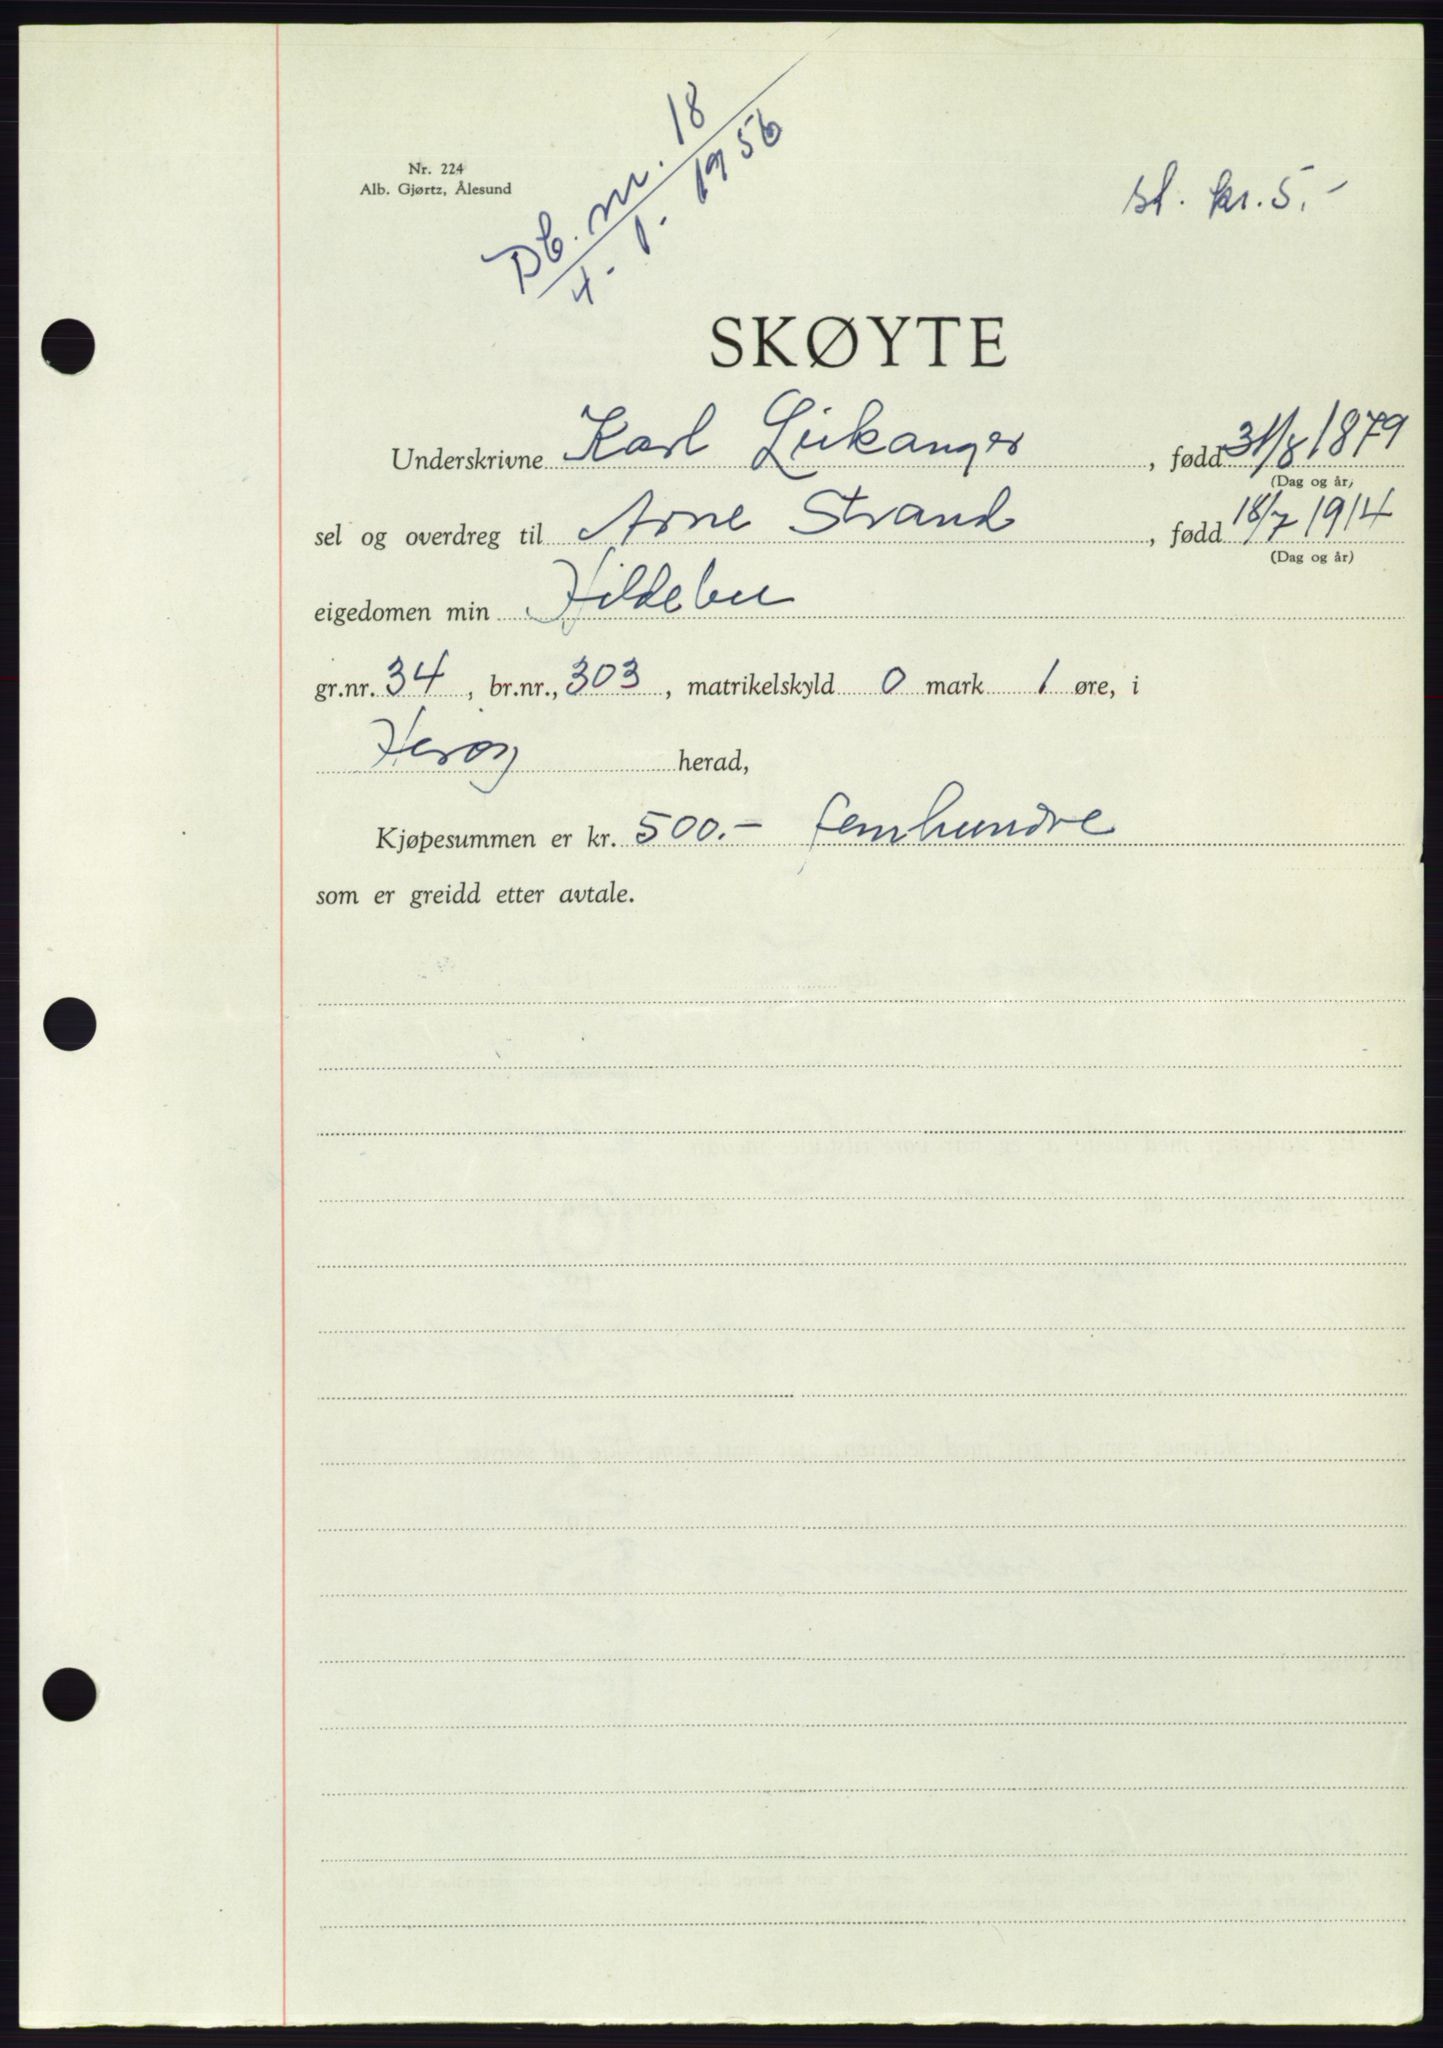 Db. nr. 18
4. - 1. - 1956
Nr. 224
Alb. Gjørtz, Ålesund
st. kr. 5.-
SKØYTE
Underskrivne Karl Leikanger , fødd 31/8 1879
(Dag og år)
sel og overdreg til Arne Strand , fødd 18/7 1914
(Dag og år)
eigedomen min Hildebu
gr.nr. 34 , br.nr., 303 , matrikelskyld 0 mark 1 øre, i
Herøy herad,
Kjøpesummen er kr. 500.- femhundre
som er greidd etter avtale.